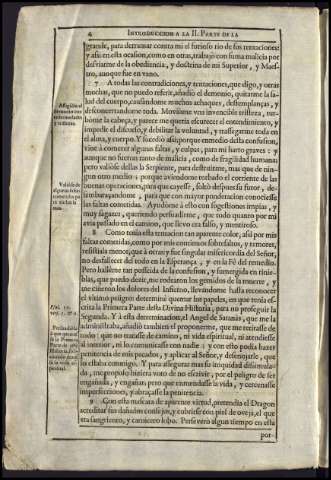 4 INTRODUCCION A LA II. PARTE DE LA
grande, para derramar contra mi el furioso rio de sus tentaciones:
y assi en esta ocasion, como en otras, trabajò con suma malicia por
desviarme de la obediencia, y doctrina de mi Superior, y Maes-
tro, aunque fue en vano.
7 A todas las contradiciones, y tentaciones, que digo, y otras
muchas, que no puedo referir, añadió el demonio, quitarme la sa-
lud del cuerpo, causandome muchos achaques, destemplanças, y
desconcertandome toda. Moviame vna invencible tristeza, tur-
bòme la cabeça, y parece me queria escurecer el entendimiento,
impedir el discurso, y debilitar la voluntad, y trassegarme toda en
el alma, y cuerpo. Y sucediò assi, porque en medio desta confusion,
vine à cometer algunas faltas, y culpas, para mi harto graves: y
aunque no fueron tanto de malicia, como de fragilidad humana;
pero valiòse dellas la Serpiente, para destruirme, mas que de nin-
gun otro medio: porque aviendome turbado el corriente de las
buenas operaciones, para que cayesse, soltò despues su furor, de-
para que con mayor ponderacion conociesse
las faltas cometidas. Ayudòme à ello con sugestiones impias, y
muy sagazes, queriendo persuadirme, que todo quanto por mi
avia passado en el camino, que llevo era falso, y mentiroso.
8 Como tenia esta tentacion tan aparente color, assi por mis
faltas cometidas, como por mis continuos sobresaltos, y temores,
resistiala menos, que à otras: y fue singular misericordia del Señor,
no desfallecer del todo en la Esperança, y en la Fè del remedio.
Pero hallème tan posseida de la confusion, y sumergida en tinie-
blas, que puedo dezir, me rodearon los gemidos de la muerte, y
me ciñeron los dolores del Infierno, llevandome hasta reconocer
el vltimo peligro determinè quemar los papeles, en que tenia es-
crita la Primera Parte desta Divina Historia, para no proseguir la
Segunda. Y à esta determinacion, el Angel de Satanàs, que me la
administraba, añadiò tambien el proponerme, que me retirasse de
todo: que no tratasse de camino, ni vida espiritual, ni atendiesse
al interior, ni lo comunicasse con nadie: y con esto podia hazer
penitencia de mis pecados, y aplacar al Señor, y desenojarle, que
lo estaba conmigo. Y para assegurar mas su iniquidad dissimula-
da, me propuso hiziera voto de no escrivir, por el peligro de ser
engañada, y engañar: pero que enmendasse la vida, y cercenasse
imperfecciones, y abraçasse la penitencia.
9 Con esta mascara de aparente virtud, pretendia el Dragon
acreditar sus dañados consejos, y cubrirse con piel de oveja, el que
era sangriento, y carnicero lobo. Perseverò algun tiempo en esta
por-